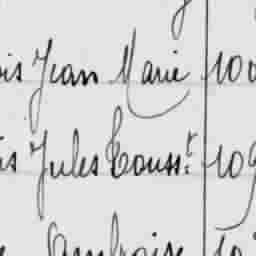 is Jean Marie 100
is Jules Touss.t 109
Ambroise 10